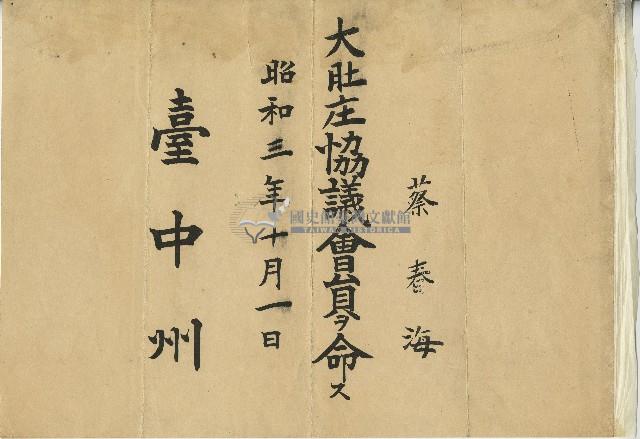 蔡春海
大肚庄協議會員ヲ命ス
昭和三年十月一日
臺中州
國史館臺灣文獻館
TAIWAN HISTORICA